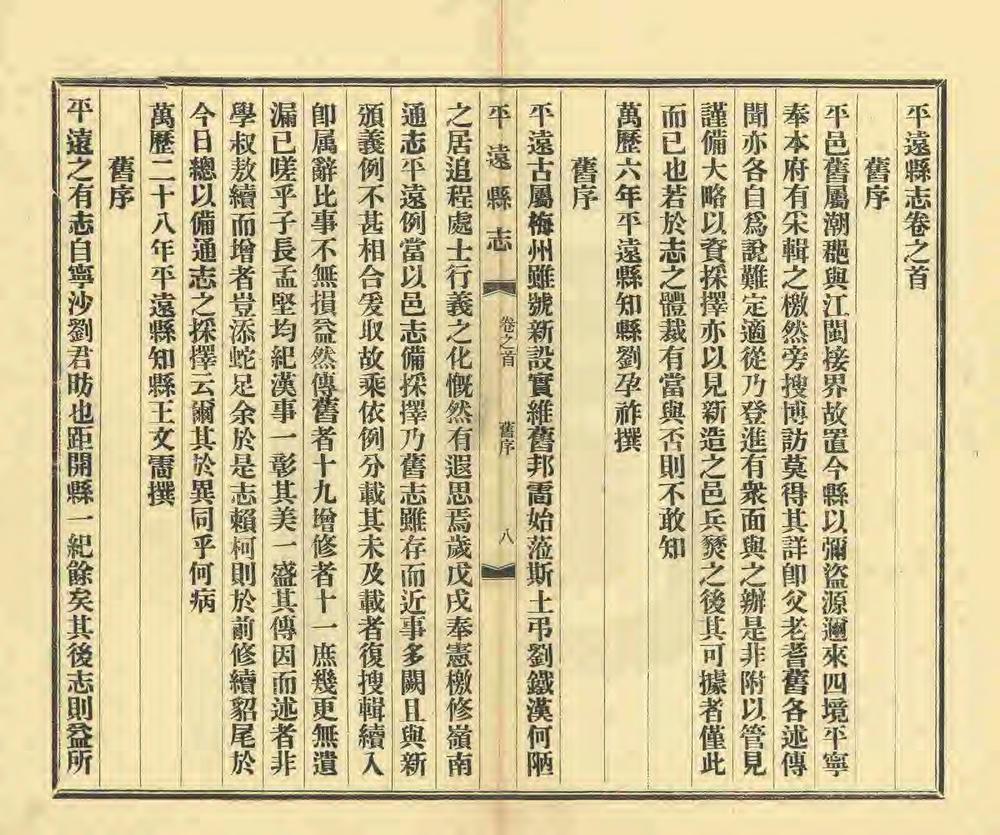 平遠縣志卷之首
舊序
平邑舊屬潮郡與江閩接界故置今縣以彌盜源邇來四境平寧
奉本府有采輯之檄然旁搜博訪莫得其詳卽父老耆舊各述傳
聞亦各自爲說難定適從乃登進有衆面與之辦是非附以管見
謹備大略以資採擇亦以見新造之邑兵燹之後其可據者僅此
而已也若於志之體裁有當與否則不敢知
萬歷六年平遠縣知縣劉孕祚撰
舊序
平遠古屬梅州雖號新設實維舊邦需始蒞斯土弔劉鐵漢何陋
平遠縣志 卷之首 舊序 八
之居追程處士行義之化慨然有遐思焉歲戊戌奉憲檄修嶺南
通志平遠例當以邑志備採擇乃舊志雖存而近事多闕且與新
頒義例不甚相合爰取故乘依例分載其未及載者復搜輯續入
卽属辭比事不無損益然傳舊者十九增修者十一庶幾更無遺
漏已嗟乎子長孟堅均紀漢事一彰其美一盛其傳因而述者非
學叔敖續而增者豈添蛇足余於是志賴柯則於前修續貂尾於
今日總以備通志之採擇云爾其於異同乎何病
萬歷二十八年平遠縣知縣王文需撰
舊序
平遠之有志自寧沙劉君昉也距開縣一紀餘矣其後志則益所